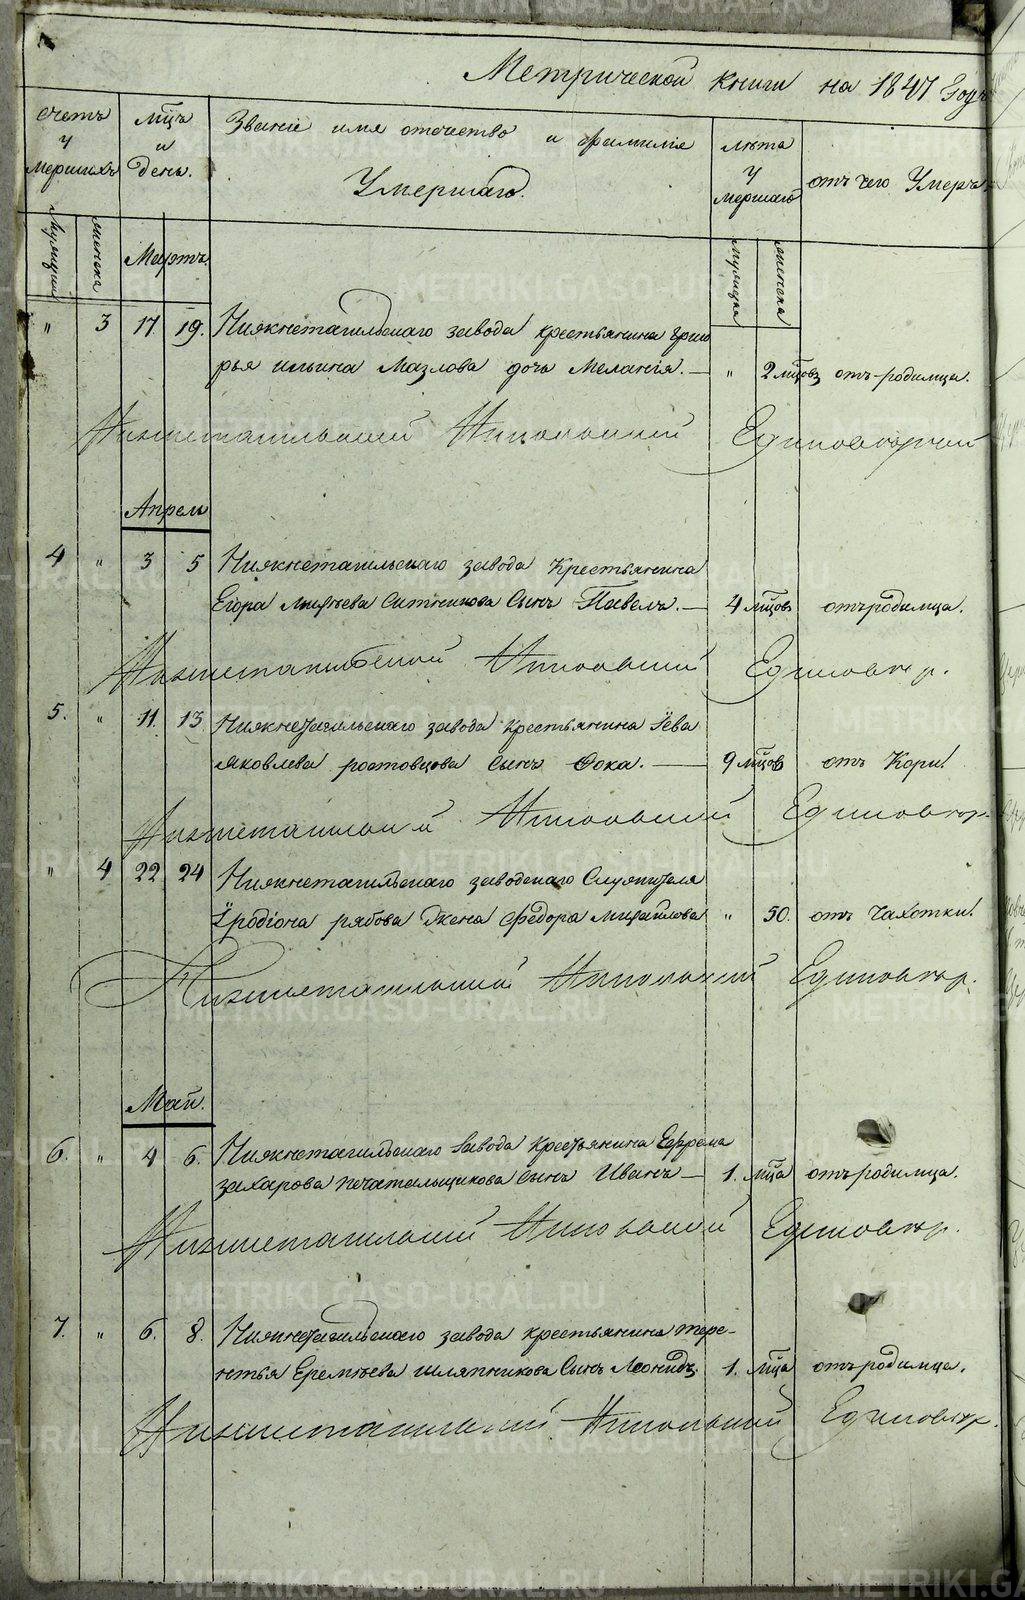 Метрической книги на 1847 Годъ
счетъ умершихъ
мц̃ъ и день.
Званіе имя отечество и фамиліе Умершаго.
лѣта умершаго
отъ чего Умеръ
мужеска
женска
Мартъ.
мужеска
женска
" 3 17 19. Нижнетагильскаго завода крестьянина Григо
рья ильина Мазлова дочь Меланія. — " 2 мц̃овъ отъ-родимца.
Нижнетагильской Никольской Единоверческой
Апрель
4 " 3 5 Нижнетагильскаго завода Крестьянина
Егора Ситникова Сынъ Павелъ. — 4 мц̃овъ отъ родимца.
Нижнетагильской Никольской Единовер.
5. " 11. 13. Нижнетагильскаго завода крестьянина
яковлева ростовцова сынъ Фока. — 9 мц̃овъ отъ Кори.
Нижнетагильской Никольской Единовер.
" 4 22 24 Нижнетагильскаго заводскаго Служителя
Іродіона рябова Жена Федора михайлова " 50. отъ Чахотки.
Нижнетагильской Никольской Единовер.
Май.
6. " 4 6. Нижнетагильскаго завода крестьянина Ефрема
захарова печатальщикова сынъ Иванъ — 1. мц̃а отъ родимца.
Нижнетагильской Никольской Единовер.
7. " 6. 8. Нижнетагильскаго завода крестьянина тере-
нтья Еремѣева шляпникова Сынъ Леонидъ 1. мц̃а отъ родимца.
Нижнетагильской Никольской Единовер.
METRIKI.GASO-URAL.RU